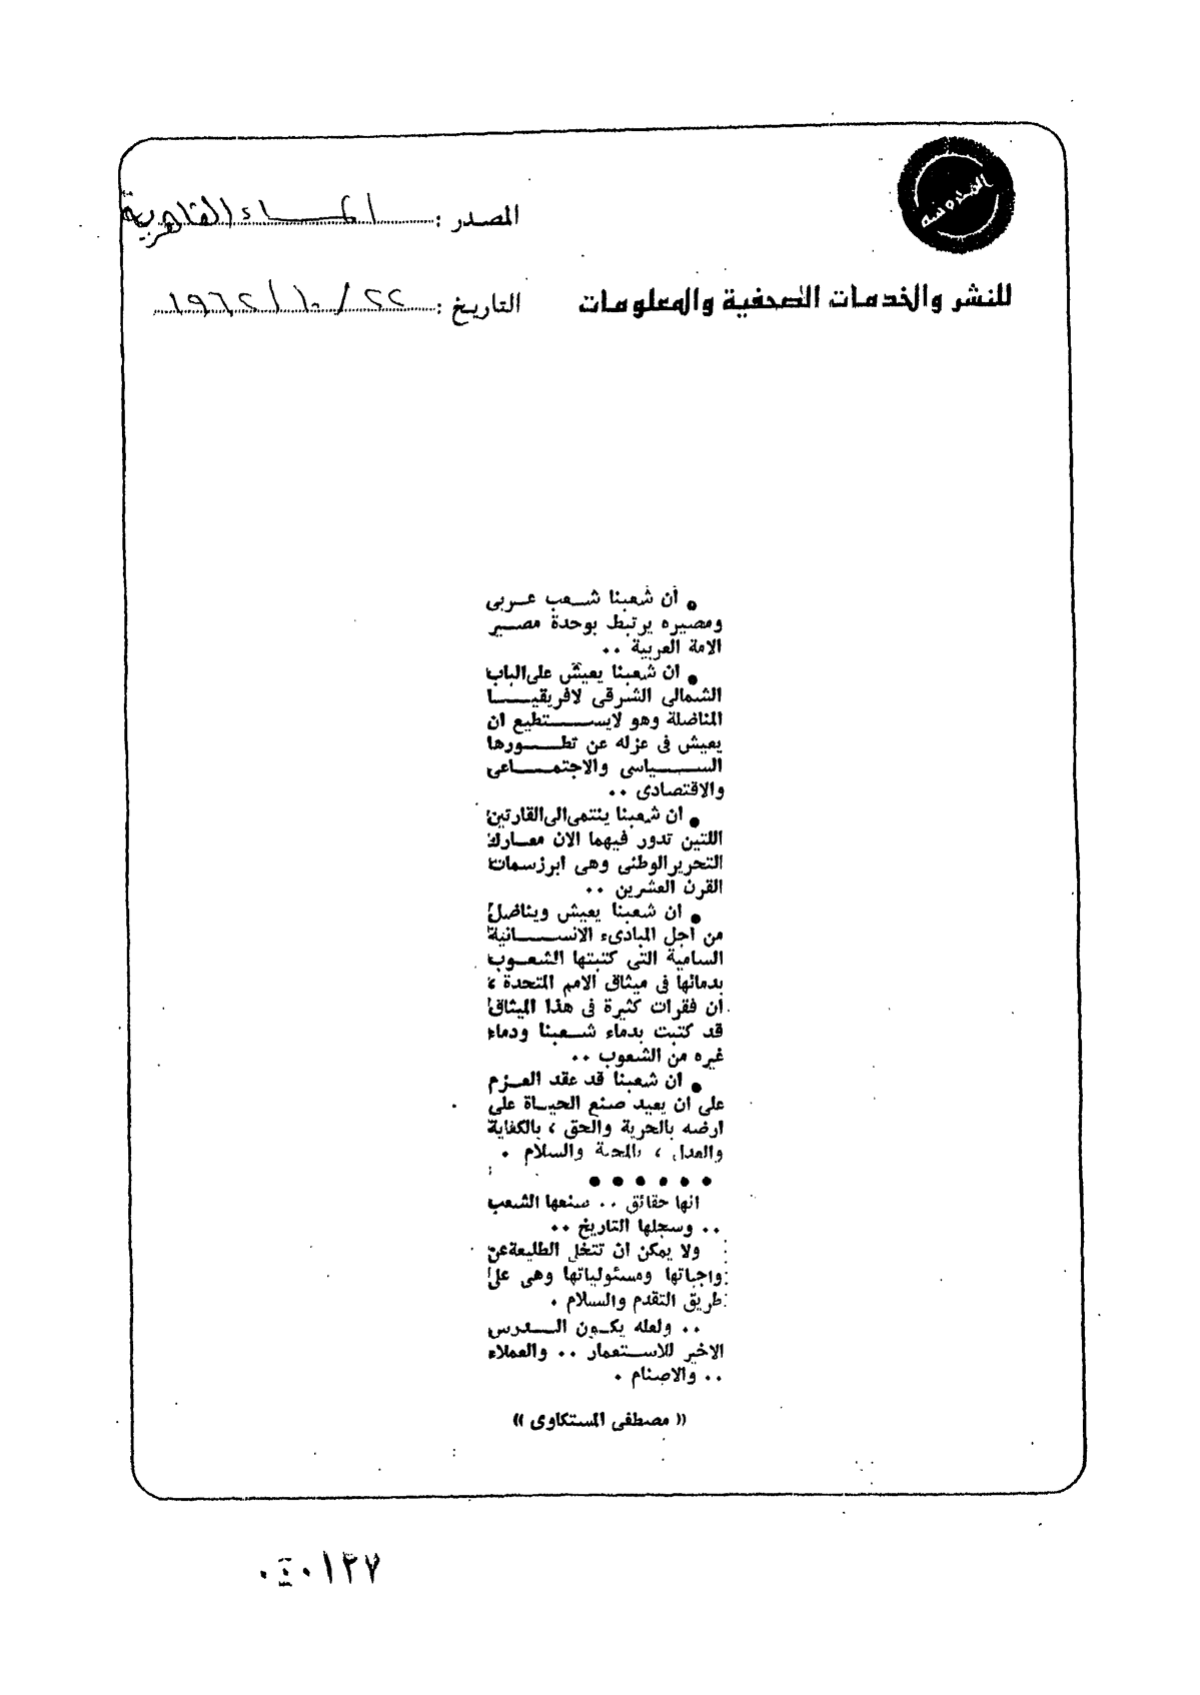 المصدر : المساء القاهرية
للنشر والخدمات الصحفية والمعلومات
التاريخ : ٢٢ / ١٠ / ١٩٦٢
● ان شعبنا شعب عربى
ومصيره يرتبط بوحدة مصير
الامة العربية ..
● ان شعبنا يعيش على الباب
الشمالى الشرقى لافريقيا
المناضلة وهو لايستطيع ان
يعيش فى عزله عن تطورها
السياسى والاجتماعى
والاقتصادى ..
● ان شعبنا ينتمى الى القارتين
اللتين تدور فيهما الان معارك
التحرير الوطنى وهى ابرز سمات
القرن العشرين ..
● ان شعبنا يعيش ويناضل
من اجل المبادىء الانسانية
السامية التى كتبتها الشعوب
بدمائها فى ميثاق الامم المتحدة ،
ان فقرات كثيرة فى هذا الميثاق
قد كتبت بدماء شعبنا ودماء
غيره من الشعوب ..
● ان شعبنا قد عقد العزم
على ان يعيد صنع الحياة على
ارضه بالحرية والحق ، بالكفاية
والعدل ، بالمحبة والسلام .
● ● ● ● ● ●
انها حقائق .. صنعها الشعب
.. وسجلها التاريخ ..
ولا يمكن ان تتخل الطليعة عن
واجباتها ومسئولياتها وهى على
طريق التقدم والسلام .
.. ولعله يكون الدرس
الاخير للاستعمار .. والعملاء
.. والاصنام .
« مصطفى المستكاوى »